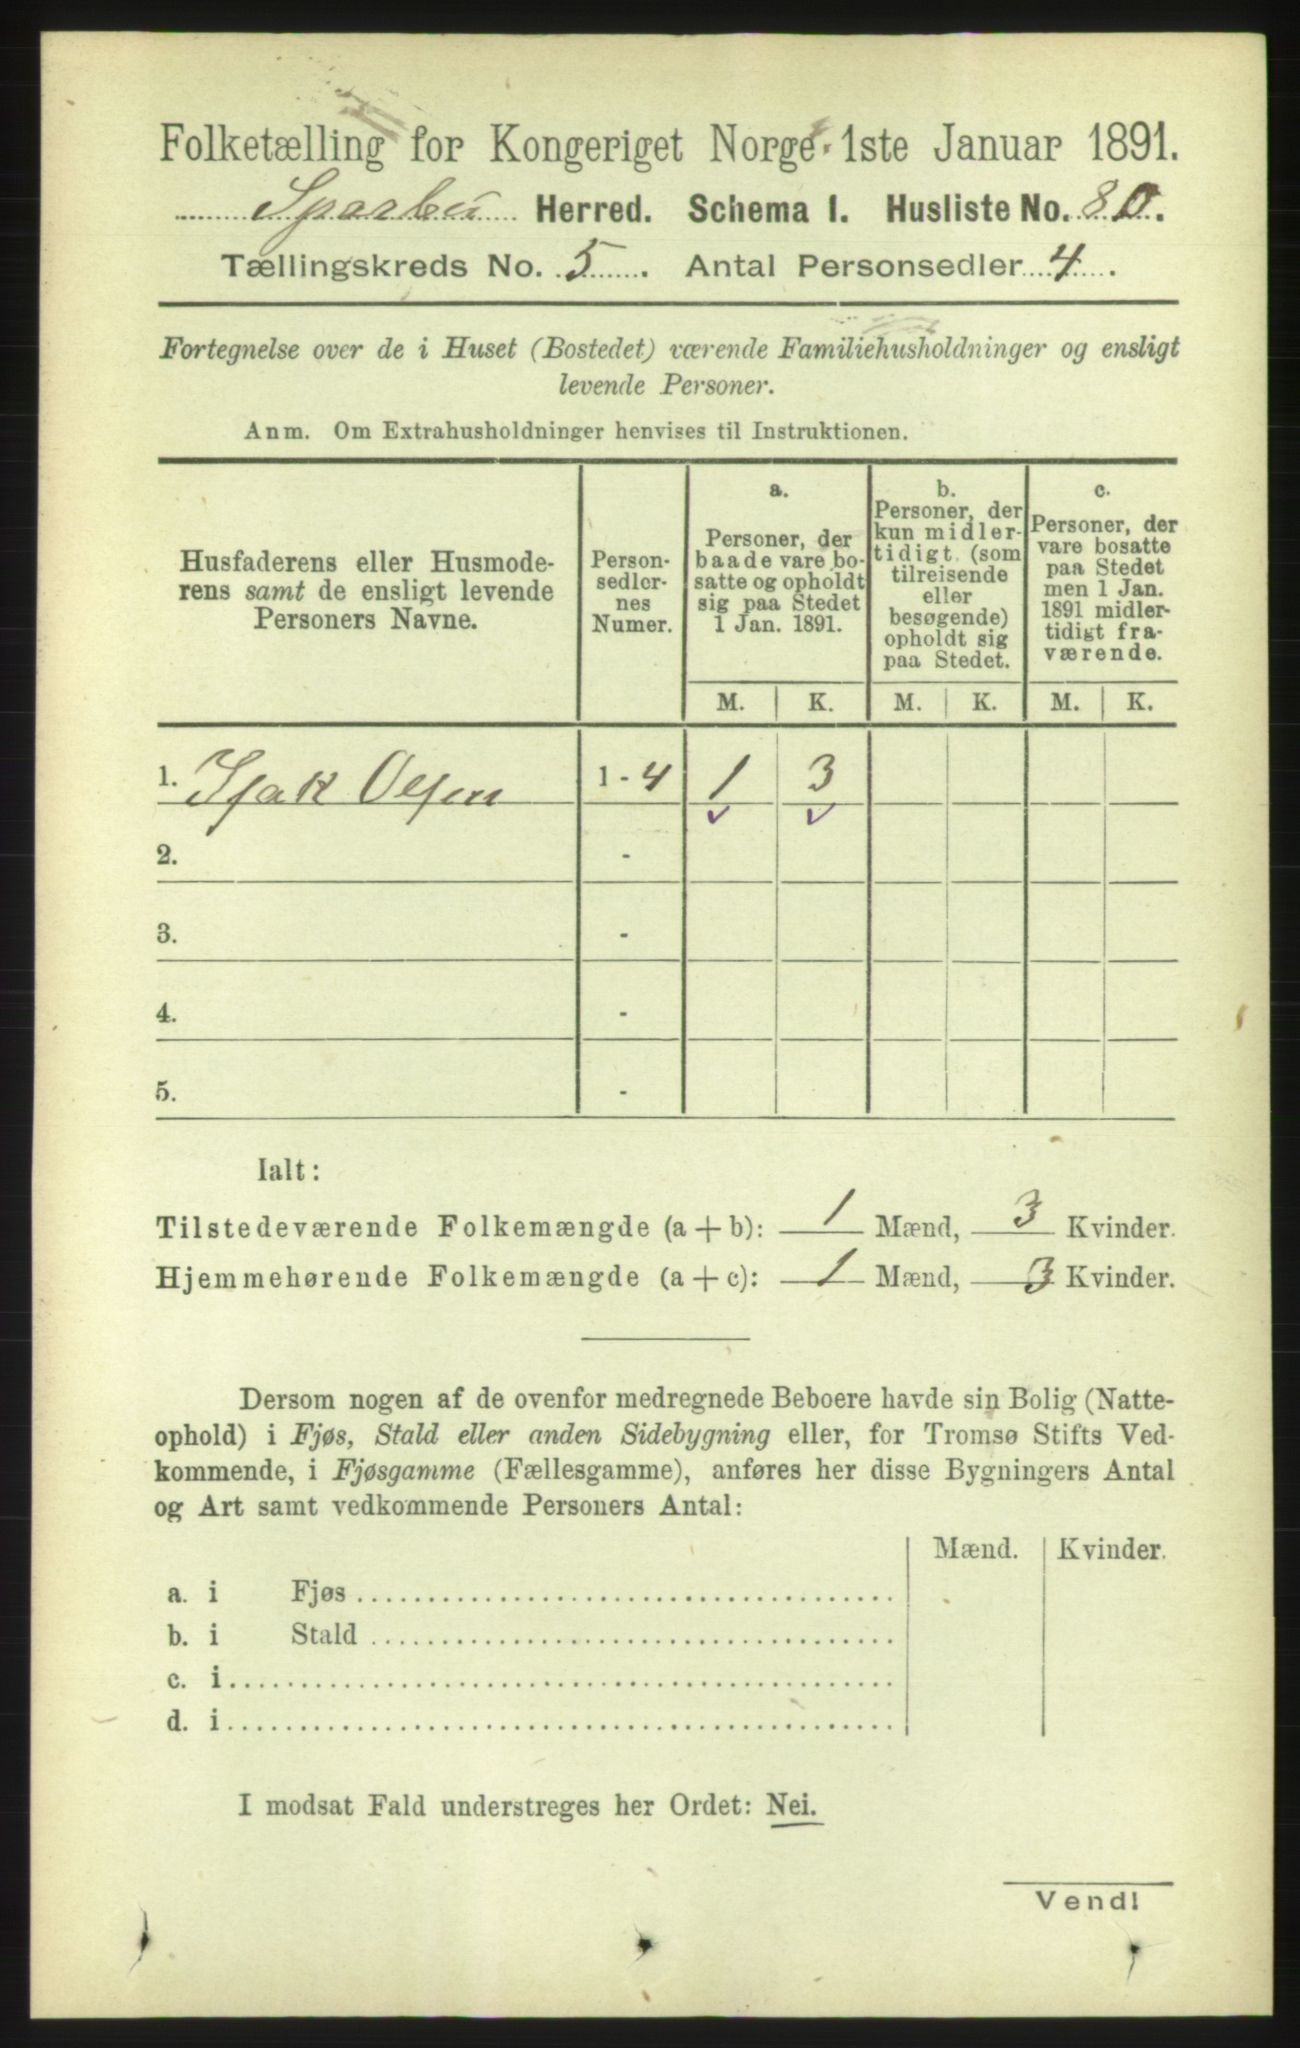 Folketælling for Kongeriget Norge 1ste Januar 1891.
Sparbu Herred. Schema I. Husliste No. 80.
Tællingskreds No. 5. Antal Personsedler 4.
Fortegnelse over de i Huset (Bostedet) værende Familiehusholdninger og ensligt
levende Personer.
Anm. Om Extrahusholdninger henvises til Instruktionen.
Husfaderens eller Husmode-
rens samt de ensligt levende
Personers Navne.
Person-
sedler-
nes
Numer.
a.
Personer, der
baade vare bo-
satte og opholdt
sig paa Stedet
1 Jan. 1891.
b.
Personer, der
kun midler-
tidigt (som
tilreisende
eller
besøgende)
opholdt sig
paa Stedet.
c.
Personer, der
vare bosatte
paa Stedet
men 1 Jan.
1891 midler-
tidigt fra-
værende.
M. K. M. K. M. K.
1. Isak Olsen 1 - 4 1 3
2. -
3. -
4. -
5. -
Ialt:
Tilstedeværende Folkemængde (a + b): 1 Mænd, 3 Kvinder.
Hjemmehørende Folkemængde (a + c): 1 Mænd, 3 Kvinder.
Dersom nogen af de ovenfor medregnede Beboere havde sin Bolig (Natte-
ophold) i Fjøs, Stald eller anden Sidebygning eller, for Tromsø Stifts Ved-
kommende, i Fjøsgamme (Fællesgamme), anføres her disse Bygningers Antal
og Art samt vedkommende Personers Antal:
Mænd. Kvinder.
a. i Fjøs
b. i Stald
c. i
d. i
I modsat Fald understreges her Ordet: Nei.
Vend!